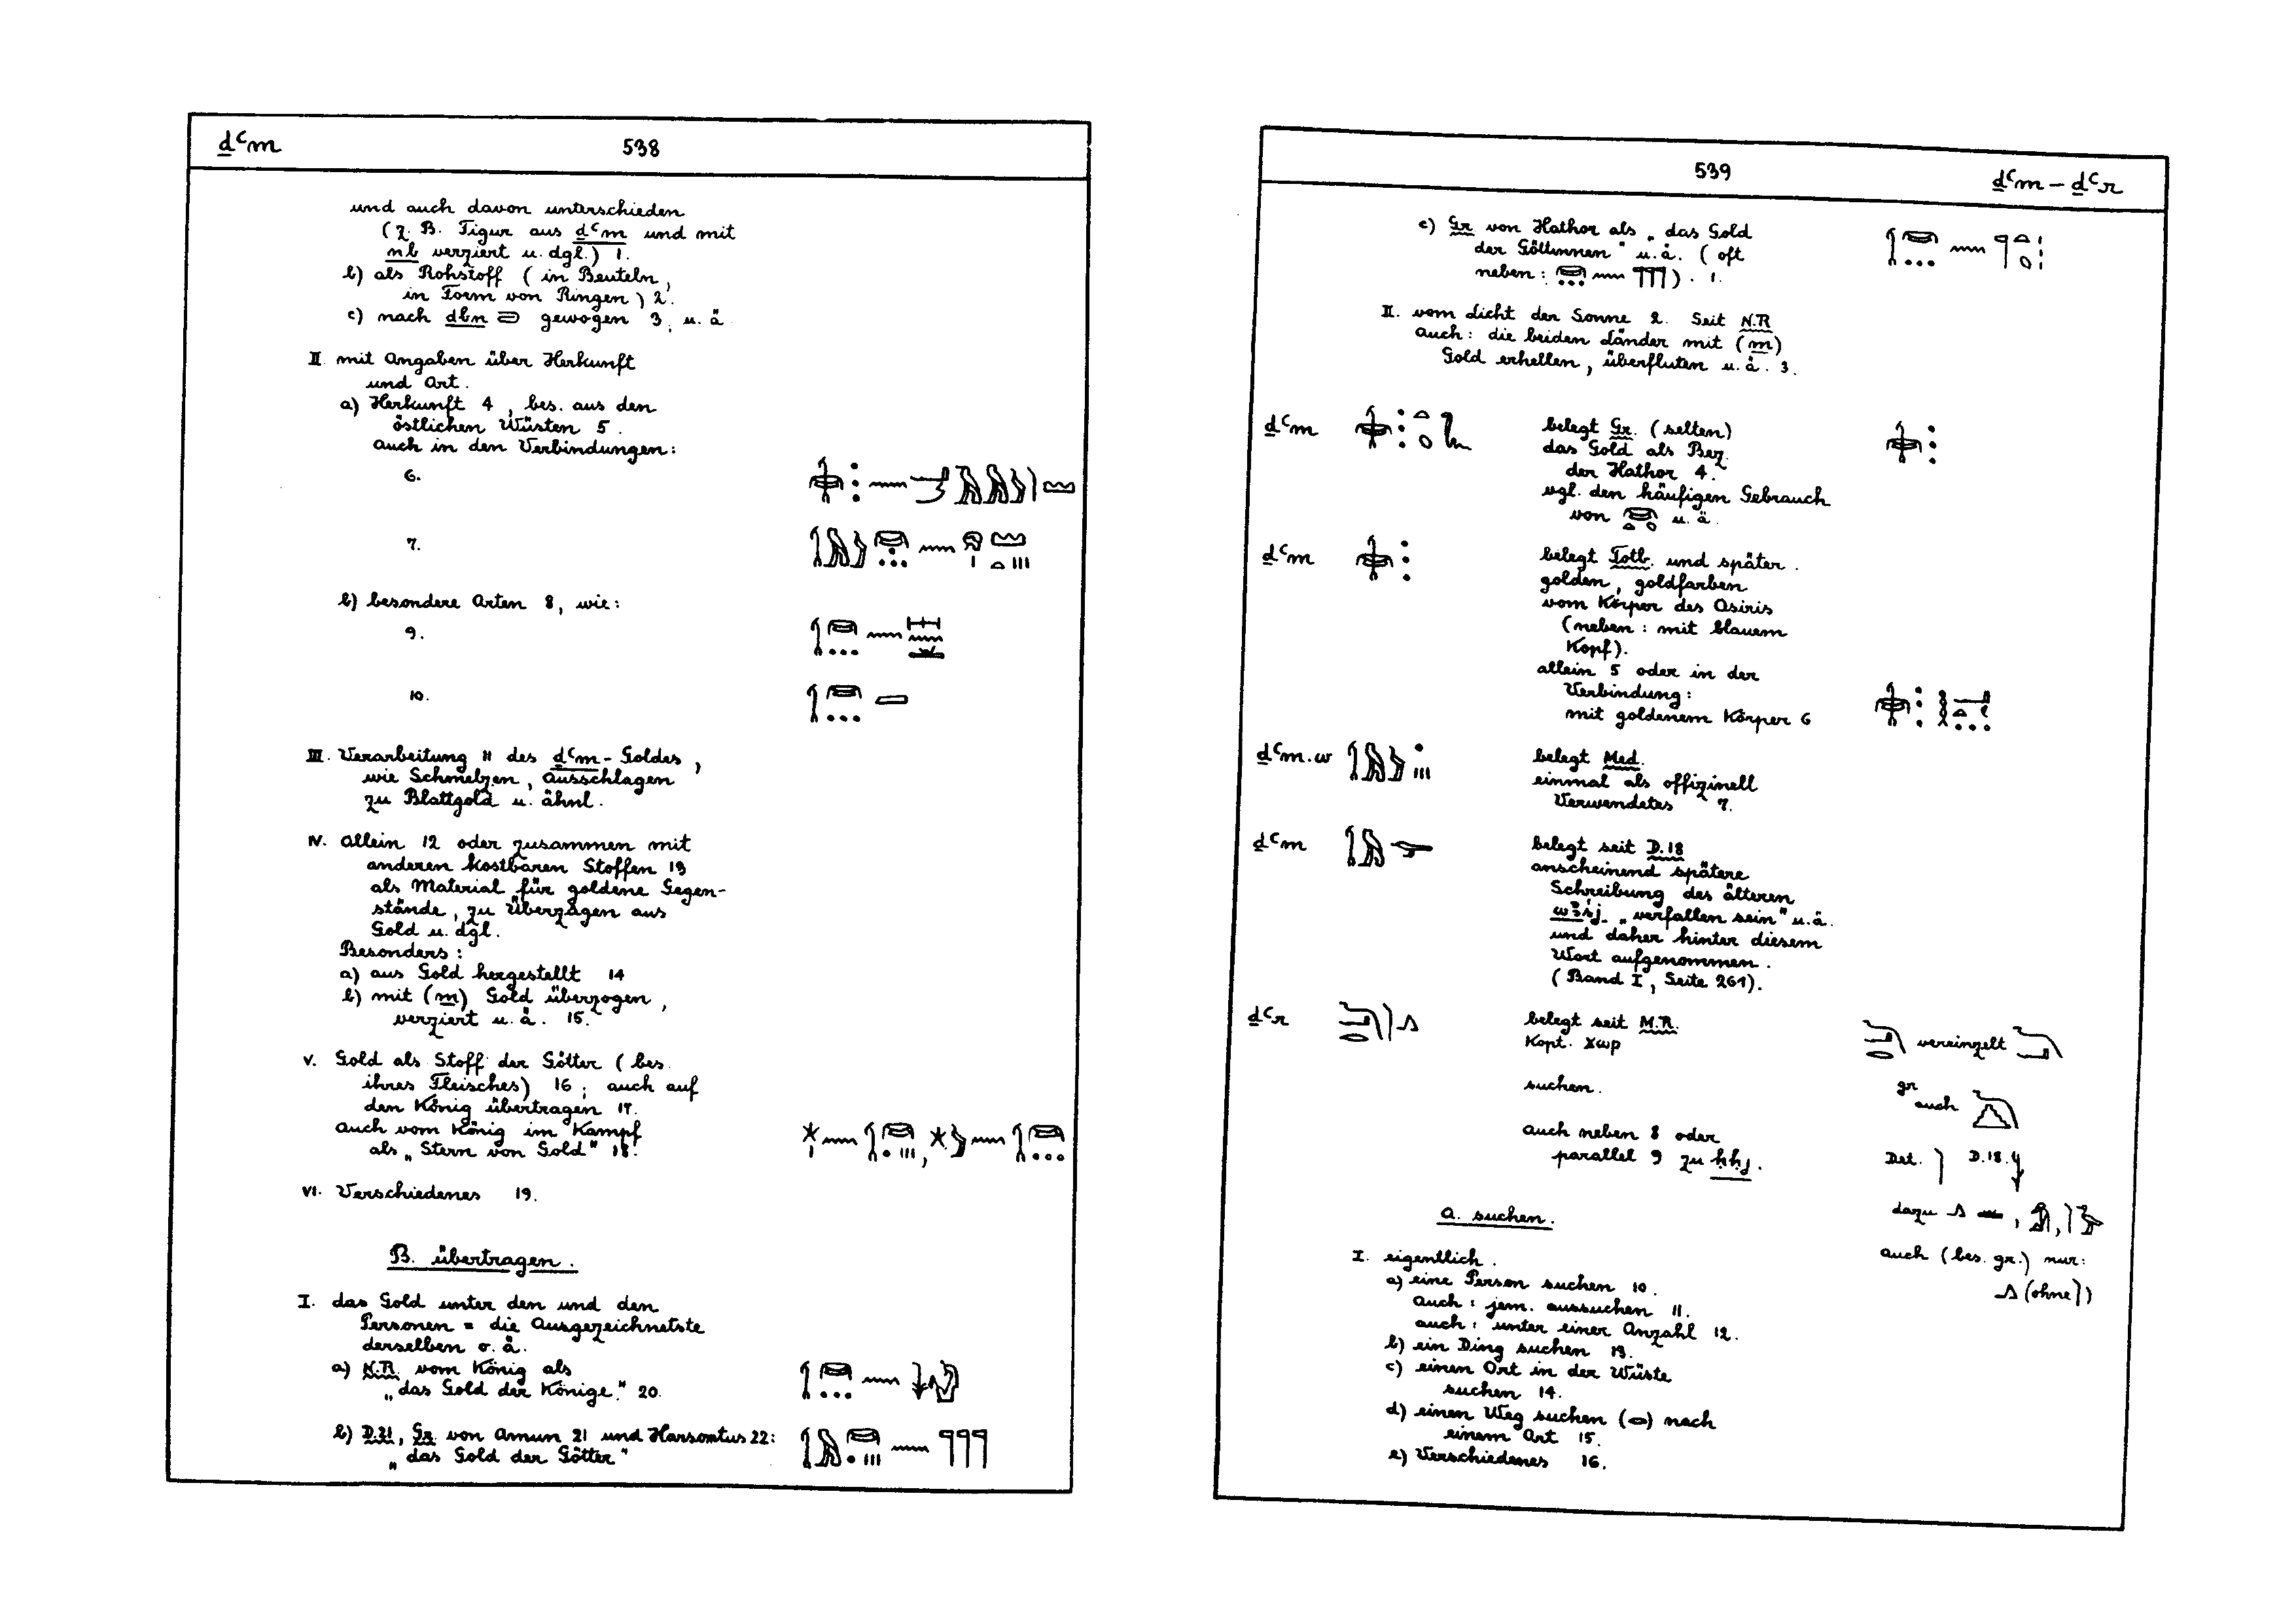 ḏꜥm 538
und auch davon unterschieden
(z. B. Figur aus ḏꜥm und mit
nb verziert u. dgl.) 1.
b) als Rohstoff (in Beuteln,
in Form von Ringen) 2.
c) nach dbn gewogen 3, u. ä
II mit Angaben über Herkunft
und Art.
a) Herkunft 4, bes. aus den
östlichen Wüsten 5.
auch in den Verbindungen:
6.
7.
b) besondere Arten 8, wie:
9.
10.
III. Verarbeitung 11 des ḏꜥm-Goldes,
wie Schmelzen, Ausschlagen
zu Blattgold u. ähnl.
IV. Allein 12 oder zusammen mit
anderen kostbaren Stoffen 13
als Material für goldene Gegen-
stände, zu Überzügen aus
Gold u. dgl.
Besonders:
a) aus Gold hergestellt 14
b) mit (m) Gold überzogen,
verziert u. ä. 15.
V. Gold als Stoff der Götter (bes.
ihres Fleisches) 16; auch auf
den König übertragen 17.
Auch vom König im Kampf
als „Stern von Gold" 18.
VI. Verschiedenes 19.
B. übertragen.
I. das Gold unter den und den
Personen = die Ausgezeichnetste
derselben o. ä.
a) N.R. vom König als
„das Gold der Könige." 20.
b) D.21, Gr. von Amun 21 und Harsomtus 22:
„das Gold der Götter"
539 ḏꜥm – ḏꜥr
c) Gr. von Hathor als „das Gold
der Göttinnen" u. ä. (oft
neben: ). 1.
II. vom Licht der Sonne 2. Seit N.R
auch: die beiden Länder mit (m)
Gold erhellen, überfluten u. ä. 3.
ḏꜥm belegt Gr. (selten)
das Gold als Bez.
der Hathor 4.
vgl. den häufigen Gebrauch
von u. ä.
ḏꜥm belegt Totb. und später.
golden, goldfarben
vom Körper des Osiris
(neben: mit blauem
Kopf).
allein 5 oder in der
Verbindung:
mit goldenem Körper 6
ḏꜥm.w belegt Med.
einmal als offizinell
Verwendetes 7.
ḏꜥm belegt seit D.18
anscheinend spätere
Schreibung des älteren
wꜣsj „verfallen sein" u. ä.
und daher hinter diesem
Wort aufgenommen.
(Band I, Seite 261).
ḏꜥr belegt seit M.R. vereinzelt
Kopt. ϫωρ
suchen. gr
auch
auch neben 8 oder
parallel 9 zu ḥḥj. Det. D.18.
dazu
A. suchen.
auch (bes. gr.) nur:
(ohne )
I. eigentlich.
a) eine Person suchen 10.
auch: jem. aussuchen 11.
auch: unter einer Anzahl 12.
b) ein Ding suchen 13.
c) einen Ort in der Wüste
suchen 14.
d) einen Weg suchen ( ) nach
einem Ort 15.
e) Verschiedenes 16.